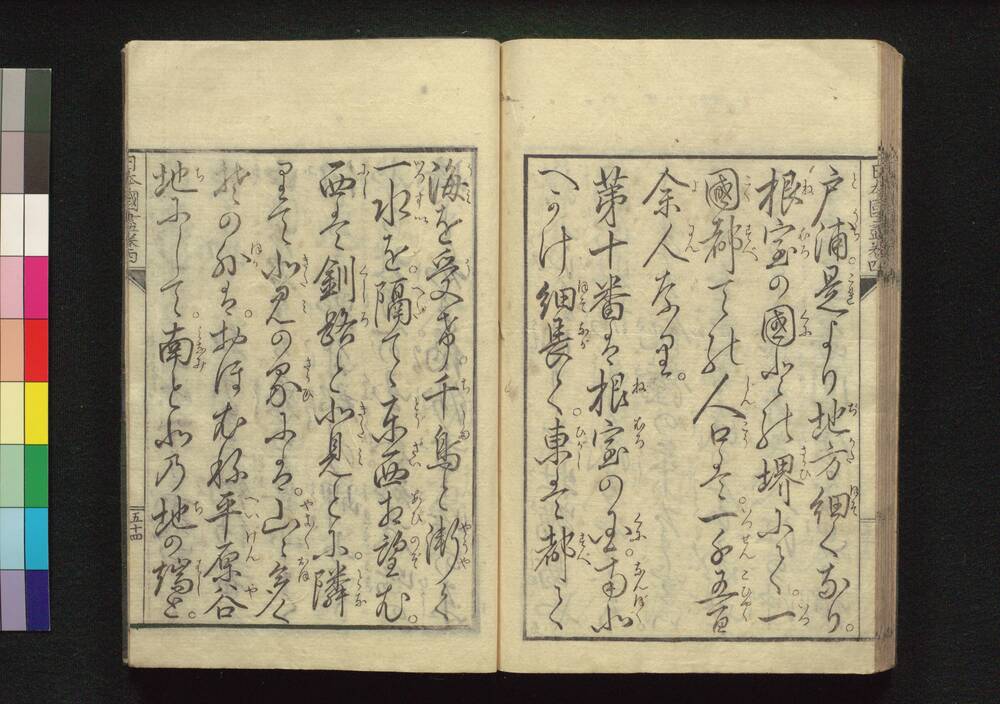 日本國盡巻四
戸浦是より地方細くなり。
根室の國との堺にて。一
國都ての人口は。一千五百
余人なり。
第十番は根室の国。南北
へかけ細長く。東は都て
海を受け。千島と漸く
一水を隔てゝ東西相望む。
西は釧路と北見とに。隣
りて北見の界には。山々多く
その外は。おほむね平原谷
地にして。南と北の地の端を。
日本國盡巻四
五十四